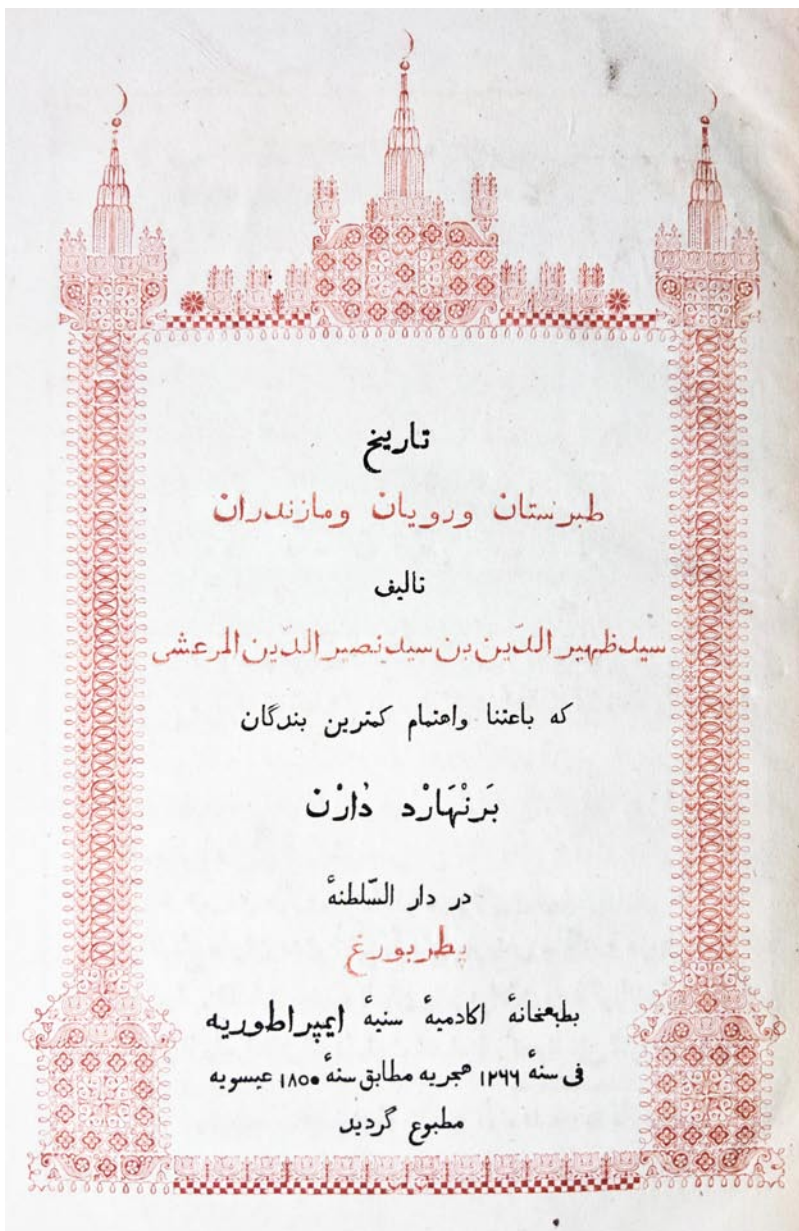 تاریخ
طبرستان ورویان ومازندران
تالیف
سید ظهیر الدّین بن سید نصیر الدّین المرعشی
که باعتنا واهتمام کمترین بندگان
بَرنْهَارْد دُارْن
در دار السّلطنهٔ
پطربورغ
بطبعخانهٔ اکادمیهٔ سنیهٔ ایمپراطوریه
فی سنهٔ ۱۲۶۶ هجریه مطابق سنهٔ ۱۸۵۰ عیسویه
مطبوع گردید